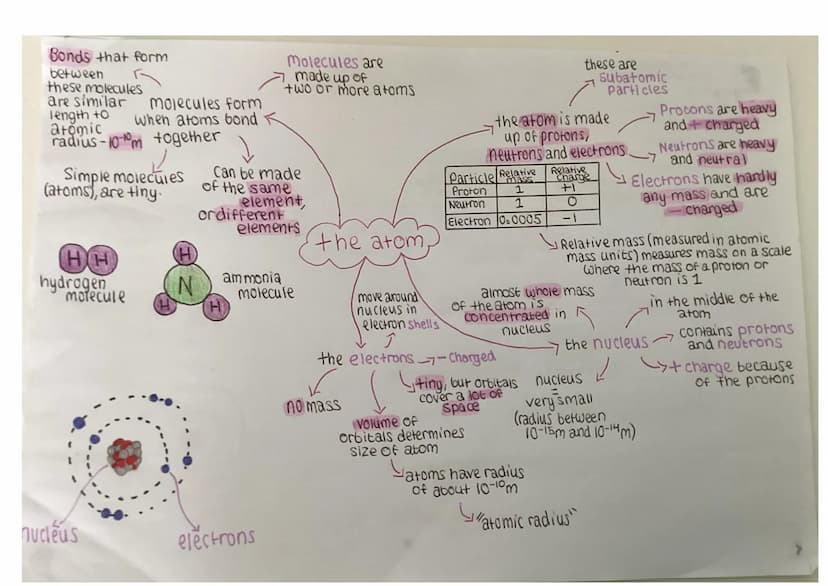 Bonds that form
between
these molecules
are similar
length to
atomic
radius - 10⁻¹⁰m
Molecules are
made up of
two or more atoms
molecules form
when atoms bond
together
Simple molecules
(atoms), are tiny.
Can be made
of the same
element,
or different
elements
H H
hydrogen
molecule
H
N
H
H
ammonia
molecule
the atom
these are
subatomic
particles
the atom is made
up of protons,
neutrons and electrons
Protons are heavy
and + charged
Neutrons are heavy
and neutral
Electrons have hardly
any mass and are
- charged
Particle Relative mass Relative charge
Proton 1 +1
Neutron 1 0
Electron 0.0005 -1
Relative mass (measured in atomic
mass units) measures mass on a scale
where the mass of a proton or
neutron is 1
move around
nucleus in
electron shells
the electrons - charged
no mass
tiny, but orbitals
cover a lot of
space
volume of
orbitals determines
size of atom
atoms have radius
of about 10⁻¹⁰m
"atomic radius"
almost whole mass
of the atom is
concentrated in
nucleus
the nucleus
in the middle of the
atom
contains protons
and neutrons
+ charge because
of the protons
nucleus
=
very small
(radius between
10⁻¹⁵m and 10⁻¹⁴m)
nucleus
electrons